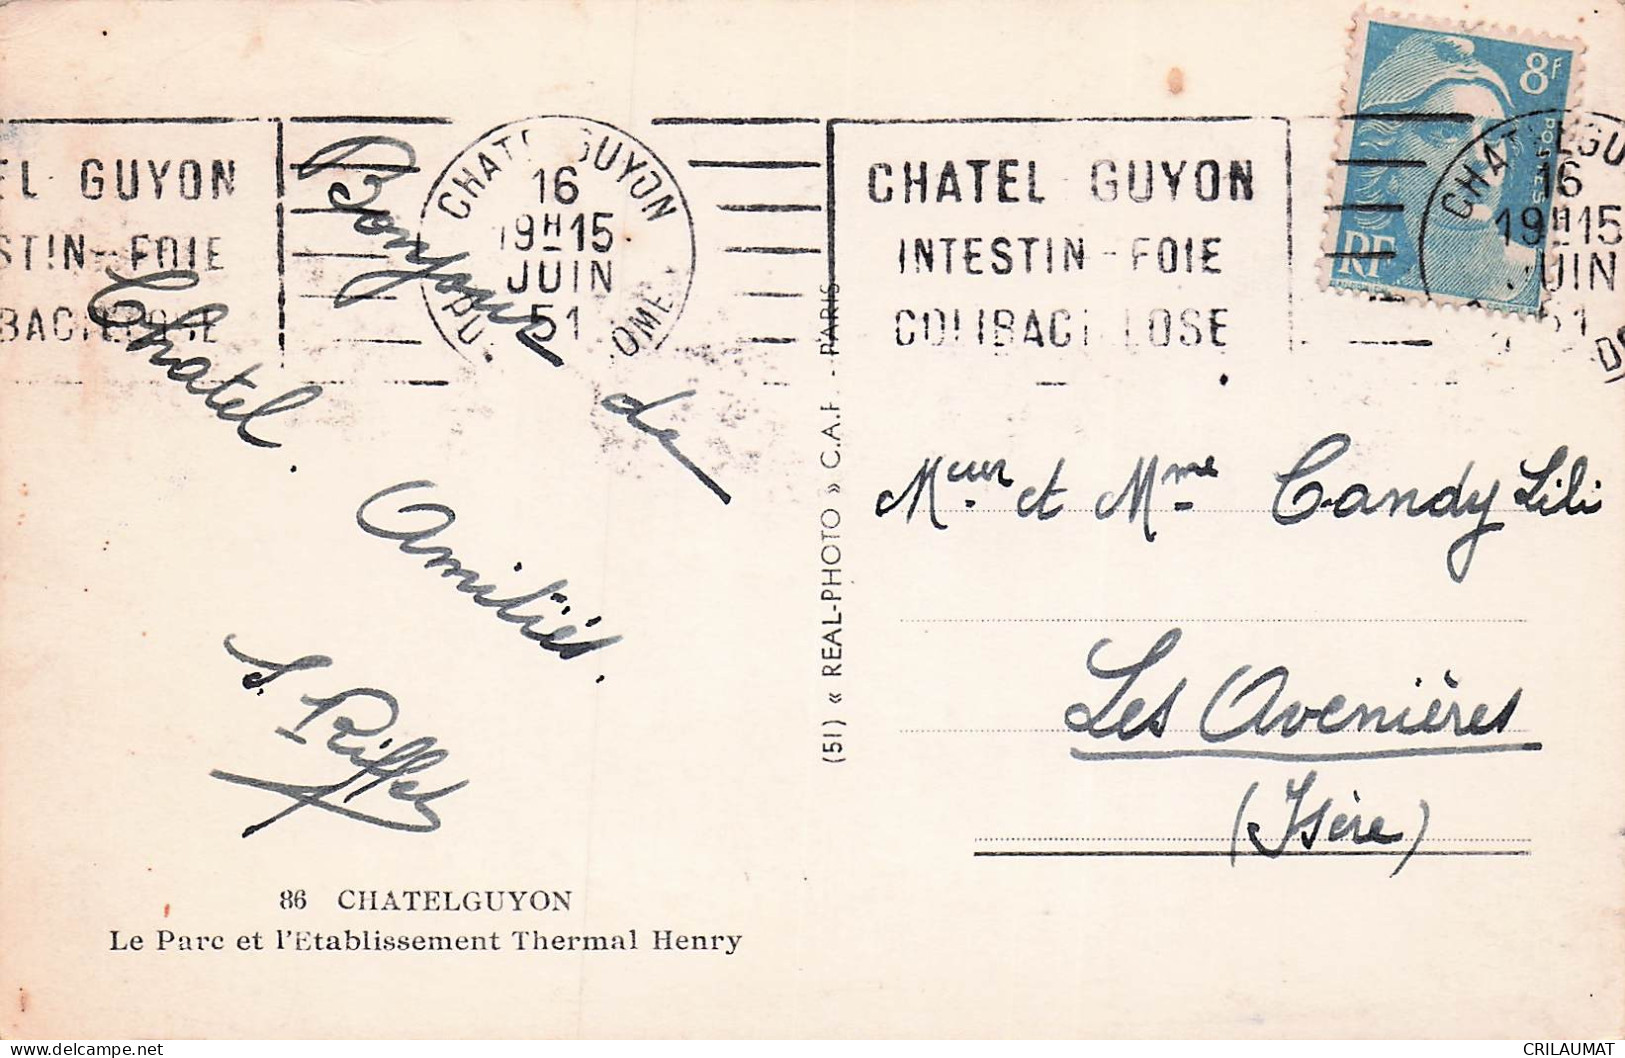 EL GUYON
STIN-FOIE
BACILLOSE
CHATEL GUYON
16
19H15
JUIN
51
PUY
DOME
CHATEL GUYON
INTESTIN-FOIE
COLIBACILLOSE
8F
POSTES
RF
CHATELGU
16
19H15
JUIN
51
Bonjour de
Chatel.
Amitiés.
S. Riffet
(51) « REAL-PHOTO » C.A.F. - PARIS
Meur et Mme Candy Lili
Les Avenières
(Isère)
86 CHATELGUYON
Le Parc et l'Etablissement Thermal Henry
CRILAUMAT